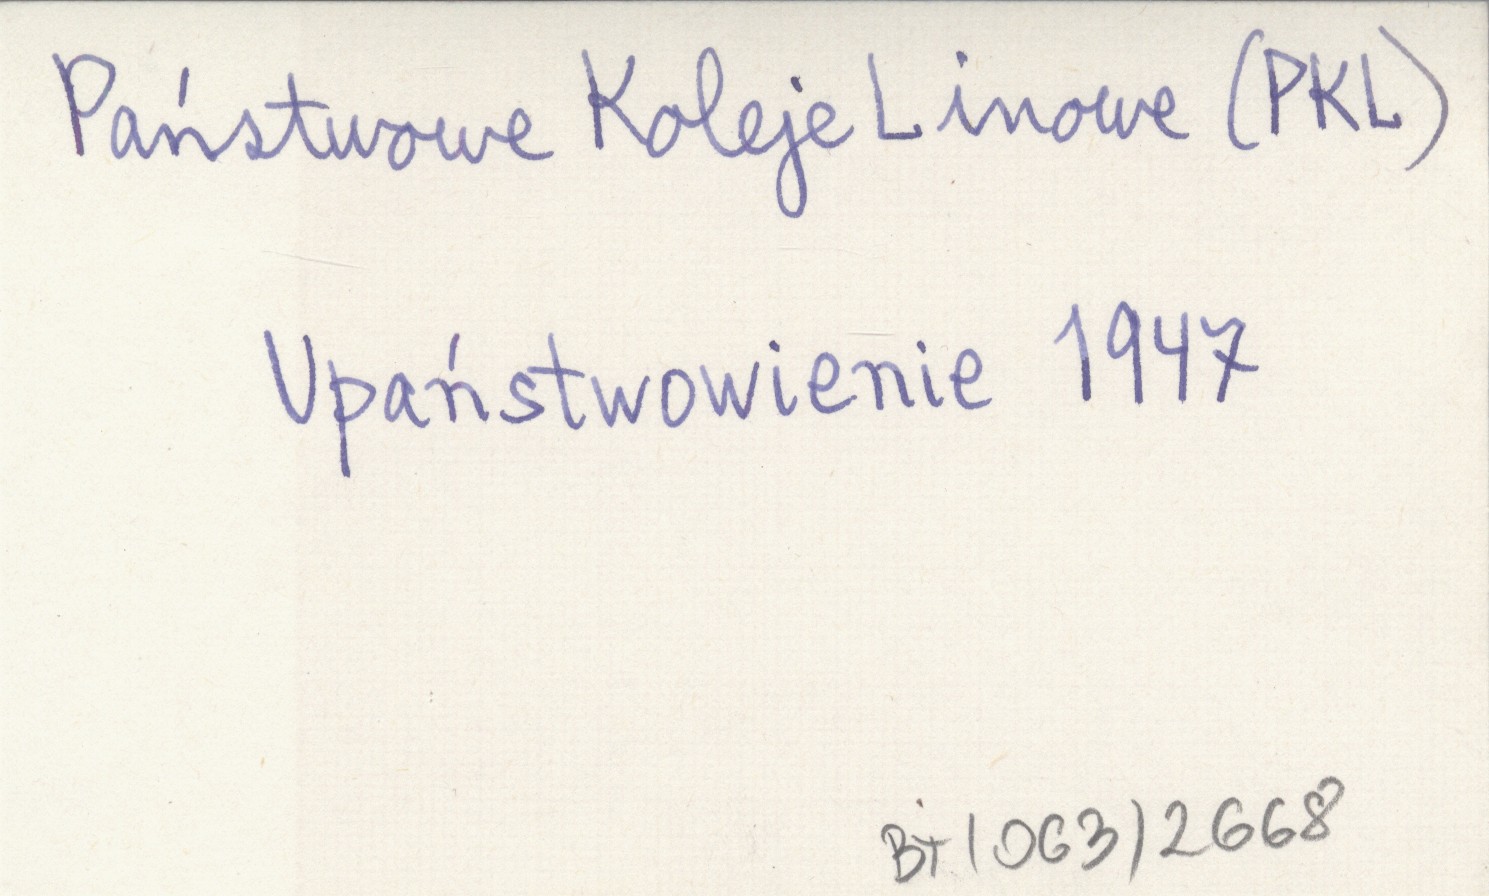 Państwowe Koleje Linowe (PKL)
Upaństwowienie 1947
BT(063)2668